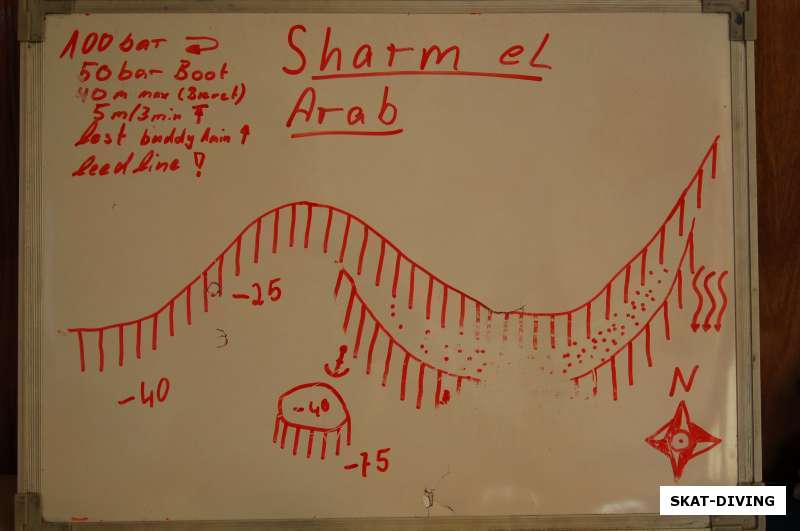 100 bar
50 bar Boot
40 m max (Brevet)
5m/3min
lost buddy 1min
leedline !
Sharm eL
Arab
-25
-40
-40
-75
N
SKAT-DIVING